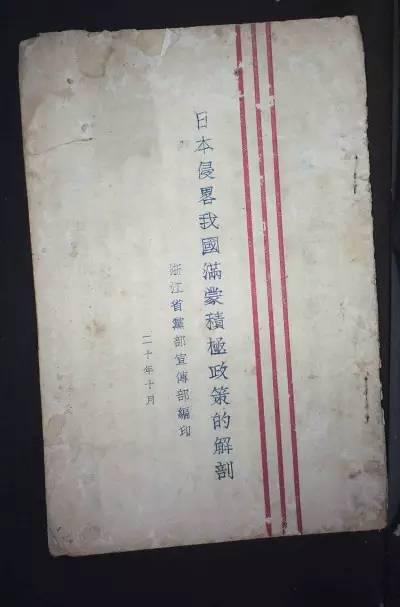 日本侵畧我國滿蒙積極政策的解剖
浙江省黨部宣傳部編印
二十年十月